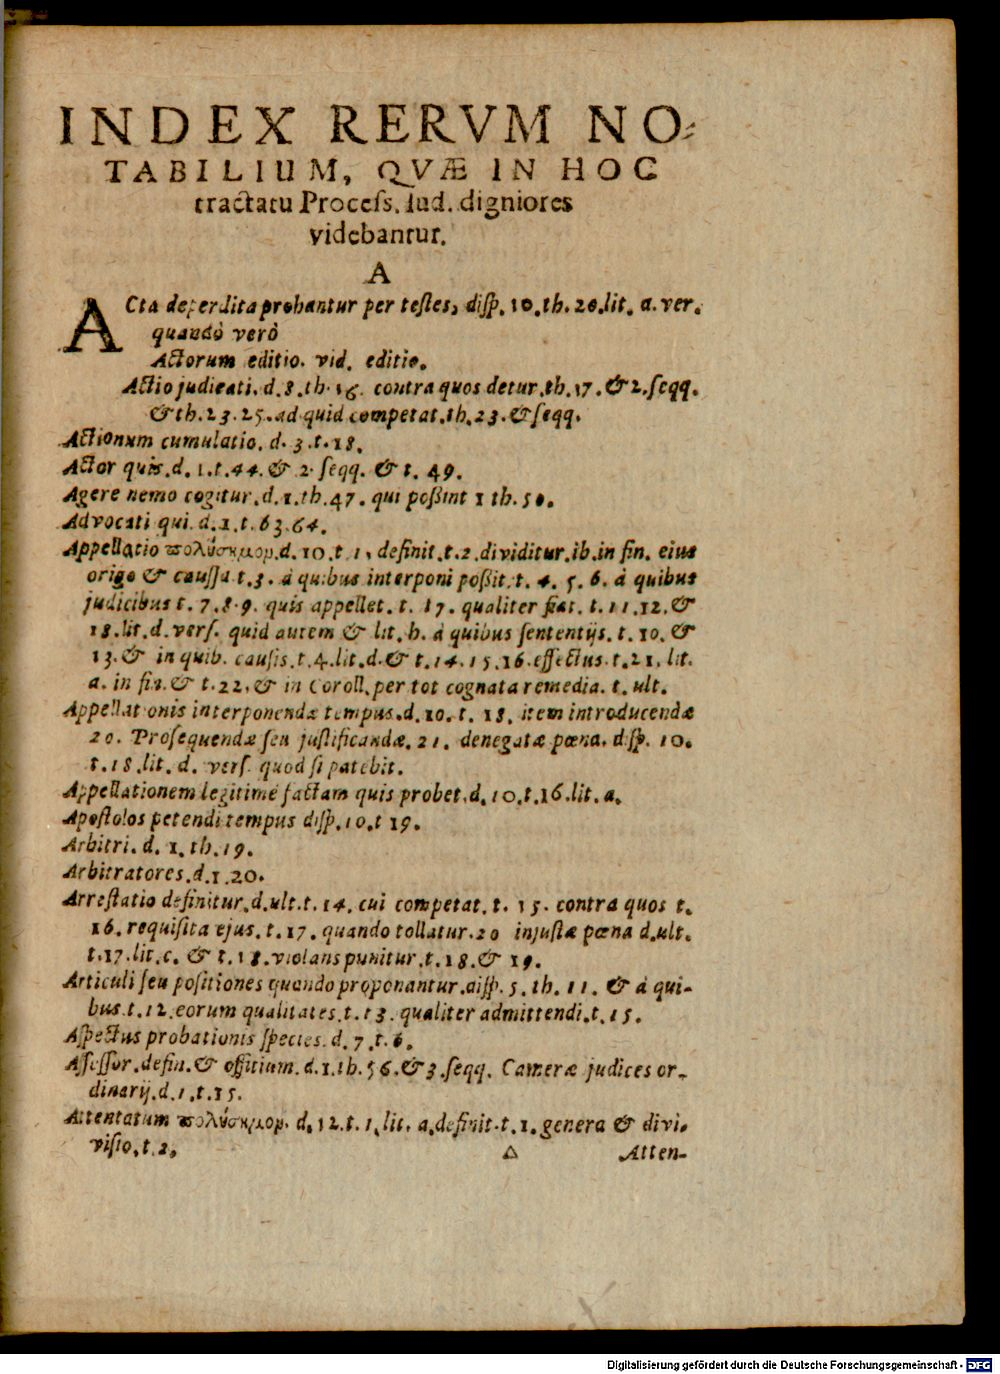 INDEX RERVM NO-
TABILIUM, QVÆ IN HOC
tractatu Process. Iud. digniores
videbantur.
A
ACta deperdita probantur per testes, disp. 10. th. 20. lit. a. ver.
quandò verò
Actorum editio. vid. editio.
Actio judicati. d. 8. th. 16. contra quos detur. th. 17. & 2. seqq.
& th. 23. 25. ad quid competat. th. 23. & seqq.
Actionum cumulatio. d. 3. t. 18.
Actor quis. d. 1. t. 44. & 2. seqq. & t. 49.
Agere nemo cogitur. d. 1. th. 47. qui poßint 1 th. 50.
Advocati qui. d. 1. t. 63. 64.
Appellatio πολύσημον. d. 10. t. 1, definit. t. 2. dividitur. ib. in fin. eius
origo & caussa t. 3. à quibus interponi poßit. t. 4. 5. 6. à quibus
judicibus t. 7. 8. 9. quis appellet. t. 17. qualiter fiat. t. 11. 12. &
18. lit. d. vers. quid autem & lit. h. à quibus sententijs. t. 10. &
13. & in quib. causis. t. 4. lit. d. & t. 14. 15. 16. effectus. t. 21. lit.
a. in fin. & t. 22. & in Coroll. per tot cognata remedia. t. ult.
Appellationis interponendæ tempus. d. 10. t. 18. item introducendæ
20. Prosequendæ seu justificandæ. 21. denegatæ pœna. disp. 10.
t. 18. lit. d. vers. quod si patebit.
Appellationem legitimè factam quis probet. d. 10. t. 16. lit. a.
Apostolos petendi tempus disp. 10. t 19.
Arbitri. d. 1. th. 19.
Arbitratores. d. 1. 20.
Arrestatio definitur. d. ult. t. 14. cui competat. t. 15. contra quos t.
16. requisita ejus. t. 17. quando tollatur. 20 injustæ pœna d. ult.
t. 17. lit. c. & t. 18. violans punitur. t. 18. & 19.
Articuli seu positiones quando proponantur. disp. 5. th. 11. & à qui-
bus. t. 12. eorum qualitates. t. 13. qualiter admittendi. t. 15.
Aspectus probationis species. d. 7. t. 6.
Assessor. defin. & officium. d. 1. th. 56. & 3. seqq. Cameræ judices or-
dinarij. d. 1. t. 15.
Attentatum πολύσημον. d. 12. t. 1. lit. a. definit. t. 1. genera & divi-
visio. t. 2.
A Atten-
Digitalisierung gefördert durch die Deutsche Forschungsgemeinschaft - DFG